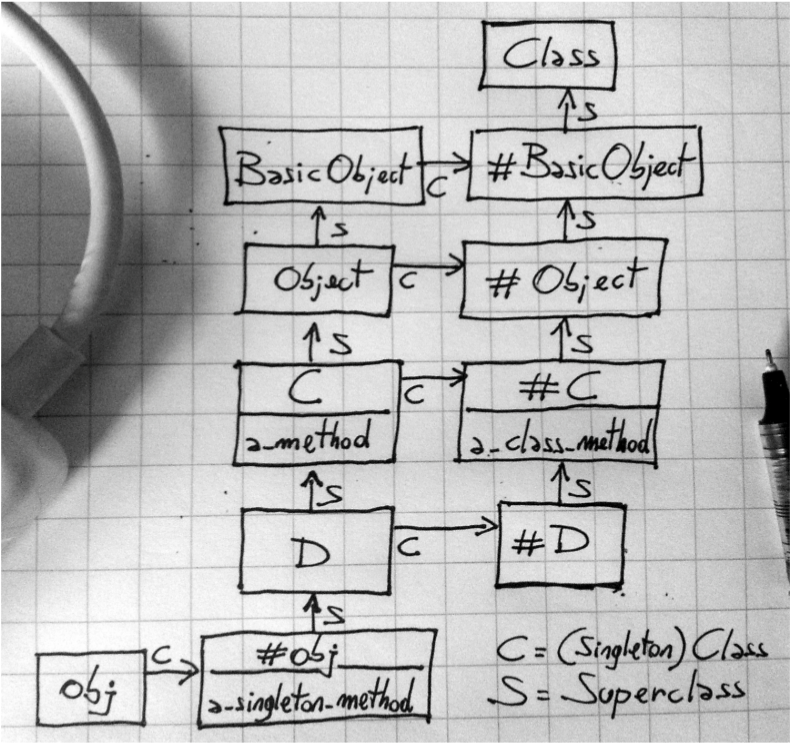 Class
S
BasicObject C #BasicObject
S S
Object C # Object
S S
C C #C
a_method a_class_method
S S
D C #D
S
obj C #obj
a_singleton_method
C = (Singleton) Class
S = Superclass